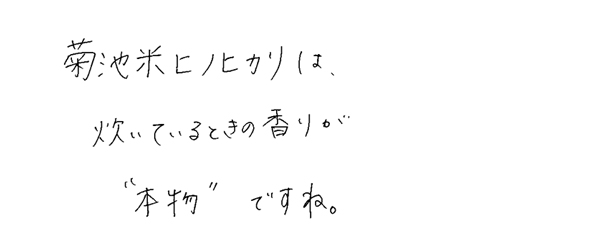 菊池米ヒノヒカリは、
炊いているときの香りが
“本物” ですね。